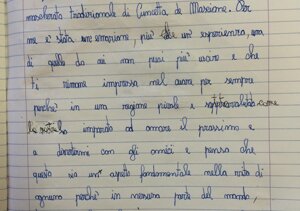 mascherata tradizionale di Cunetta de Marsione. Per
me è stata un'emozione, più che un'esperienza, una
di quelle da cui non puoi più uscire e che
ti rimane impressa nel cuore per sempre
perché in una regione piccola e sopravvalutata come
la nostra ho imparato ad amare il prossimo e
a divertirmi con gli amici e penso che
questo sia un aspetto fondamentale nella vita di
ognuno perché in nessuna parte del mondo,